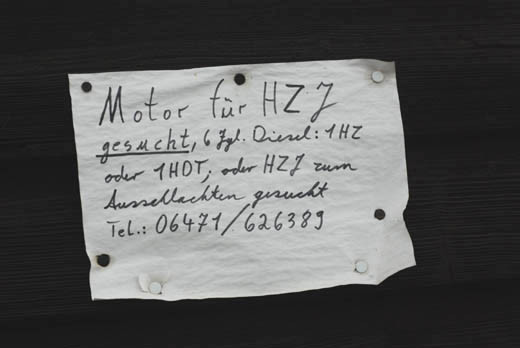 Motor für HZJ
gesucht, 6 Zyl. Diesel: 1HZ
oder 1HDT, oder HZJ zum
Ausschlachten gesucht
Tel.: 06471/626389